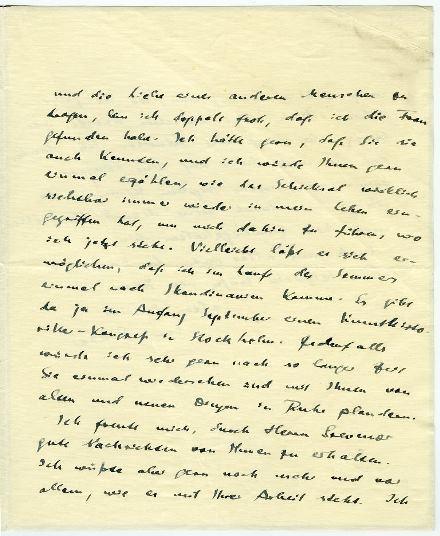 und die Liebe eines anderen Menschen zu
tragen, bin ich doppelt froh, daß ich die Frau
gefunden habe. Ich hätte gern, daß Sie sie
auch kennten, und ich würde Ihnen gern
einmal erzählen, wie das Schicksal wirklich
sichtbar immer wieder in mein Leben ein-
gegriffen hat, um mich dahin zu führen, wo
ich jetzt stehe. Vielleicht läßt es sich er-
möglichen, daß ich im Laufe des Sommers
einmal nach Skandinavien komme. Es gibt
da ja im Anfang September einen Kunsthisto
riker-Kongreß in Stockholm. Jedenfalls
würde ich sehr gern nach so langer Zeit
Sie einmal wiedersehen und mit Ihnen von
alten und neuen Dingen in Ruhe plaudern.
Ich freute mich, durch Herrn
gute Nachrichten von Ihnen zu erhalten.
Ich wüßte aber gern noch mehr und vor
allem, wie es mit Ihrer Arbeit steht. Ich